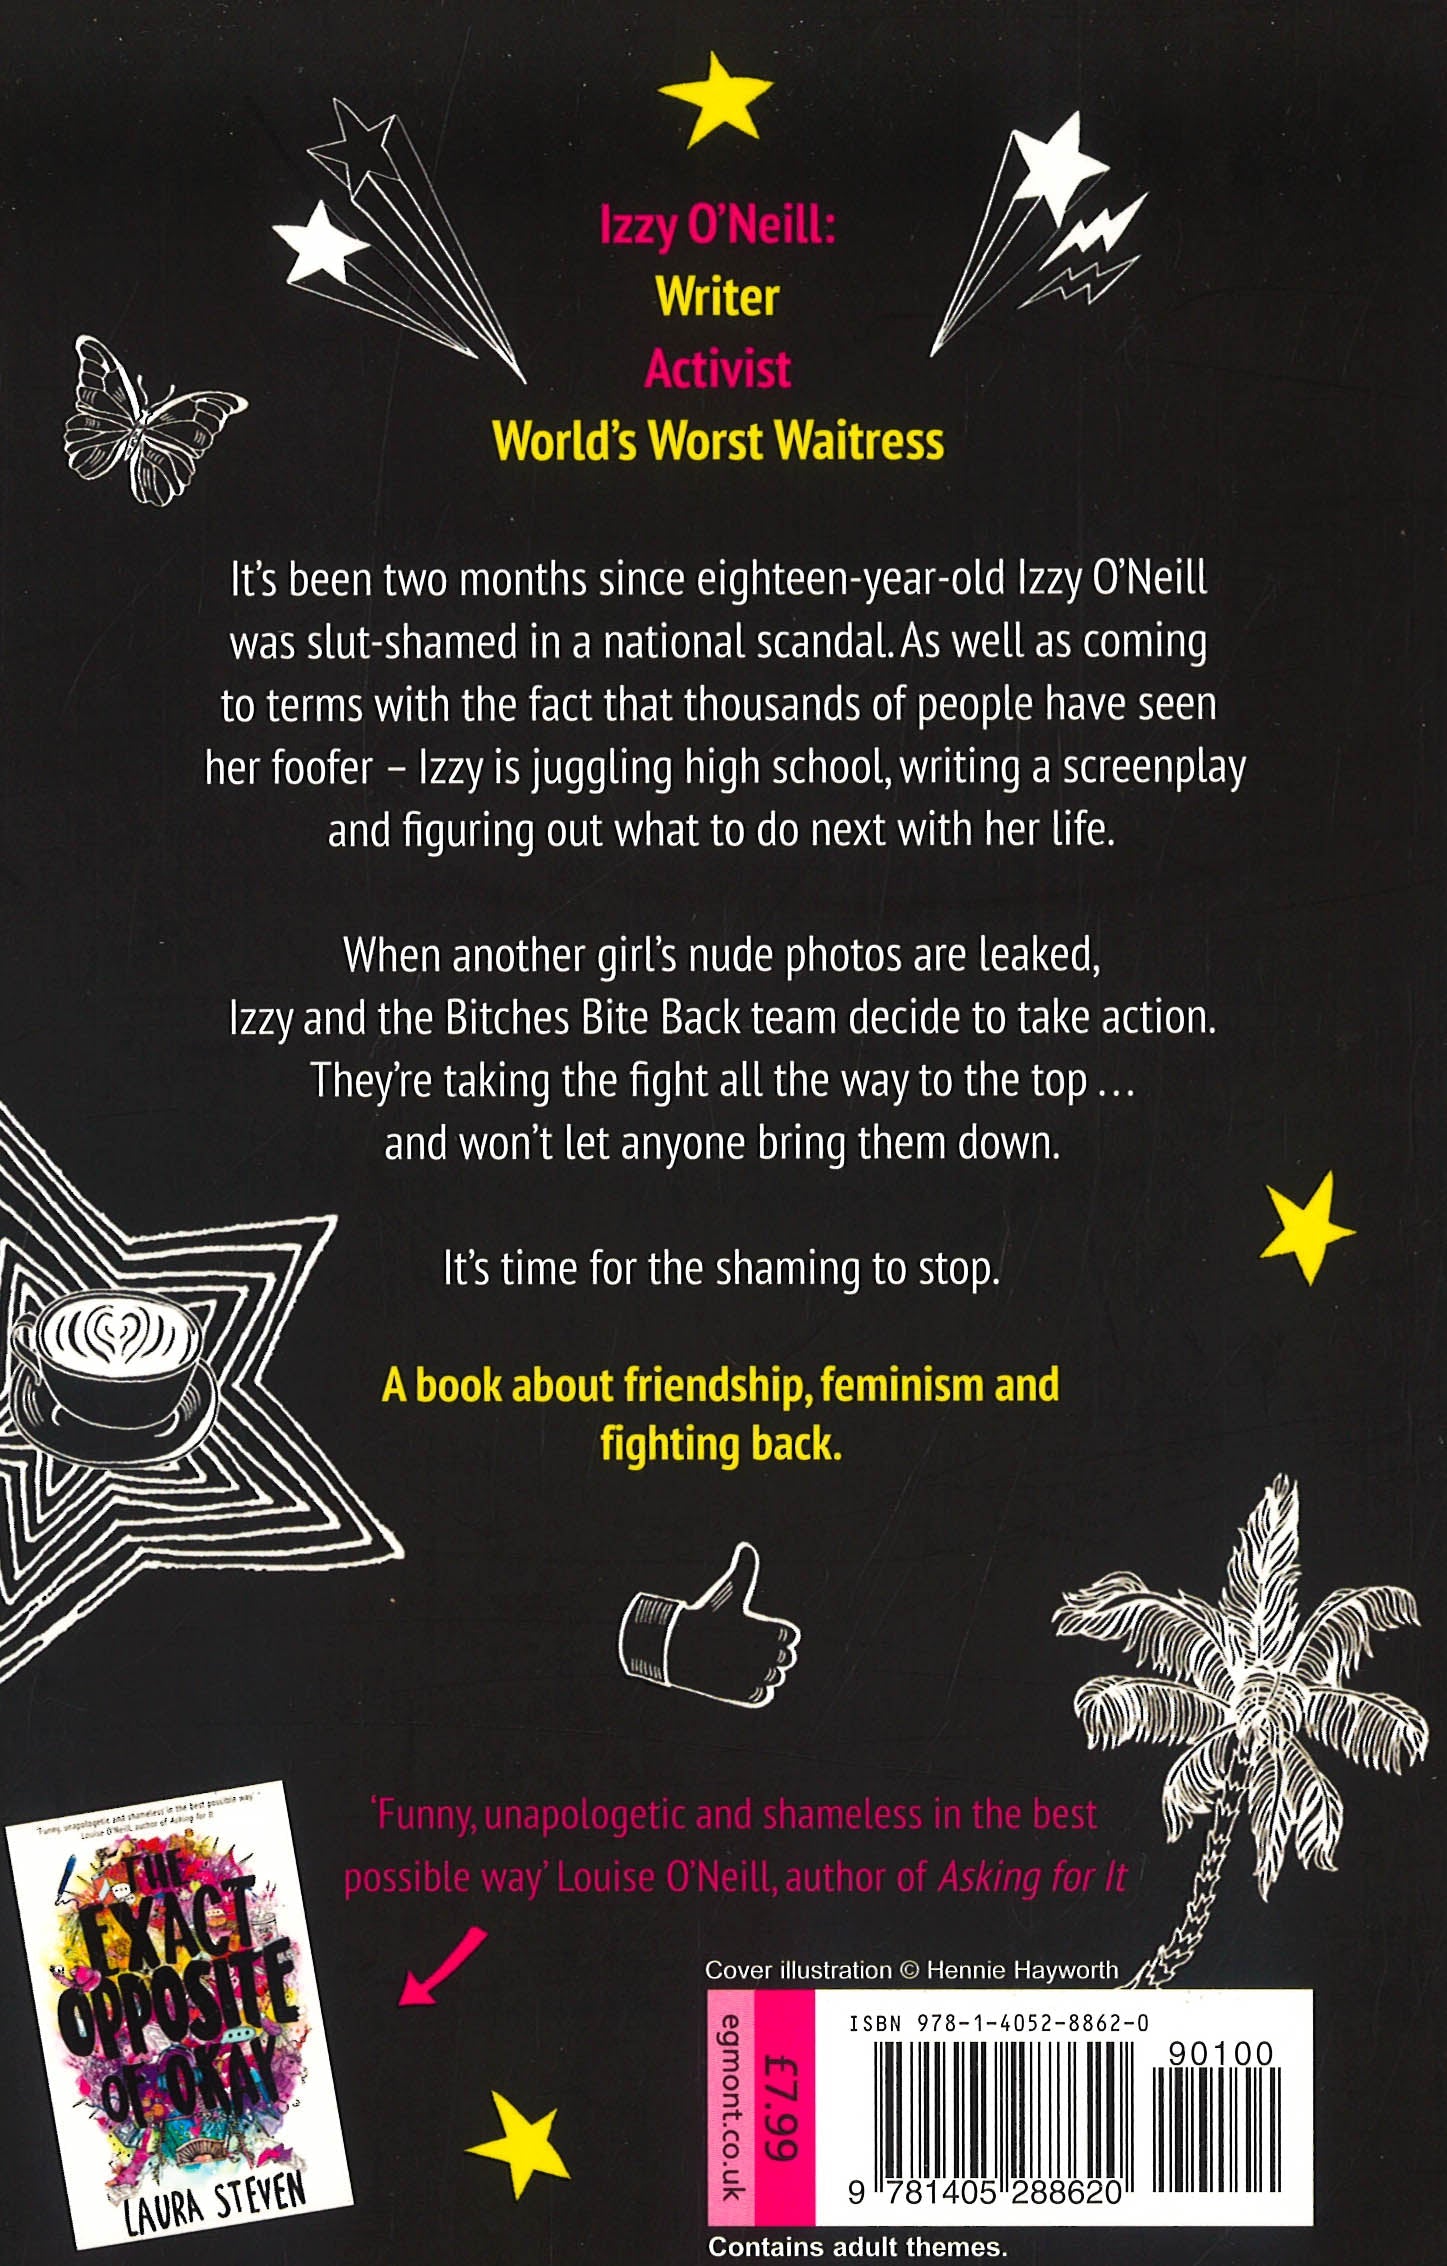 Izzy O'Neill:
Writer
Activist
World's Worst Waitress
It's been two months since eighteen-year-old Izzy O'Neill
was slut-shamed in a national scandal. As well as coming
to terms with the fact that thousands of people have seen
her foofer – Izzy is juggling high school, writing a screenplay
and figuring out what to do next with her life.
When another girl's nude photos are leaked,
Izzy and the Bitches Bite Back team decide to take action.
They're taking the fight all the way to the top ...
and won't let anyone bring them down.
It's time for the shaming to stop.
A book about friendship, feminism and
fighting back.
'Funny, unapologetic and shameless in the best
possible way' Louise O'Neill, author of Asking for It
'Funny, unapologetic and shameless in the best possible way'
Louise O'Neill, author of Asking for It
THE
EXACT
OPPOSITE
OF OKAY
LAURA STEVEN
Cover illustration © Hennie Hayworth
egmont.co.uk
£7.99
ISBN 978-1-4052-8862-0
90100
9 781405 288620
Contains adult themes.